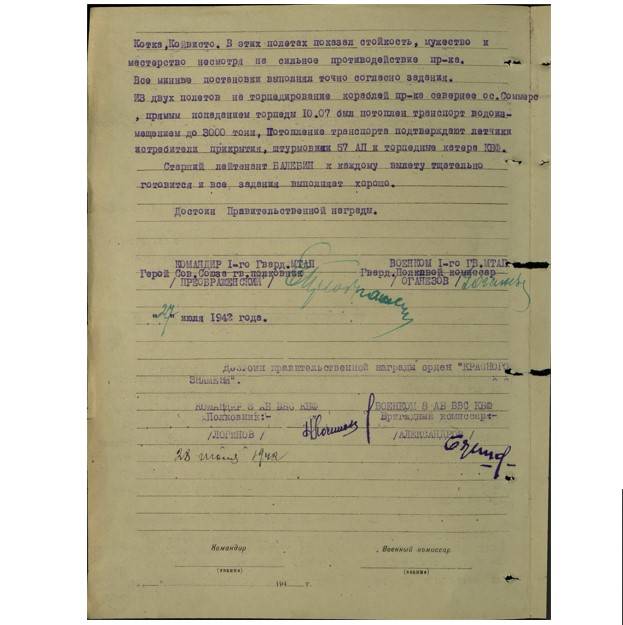 Котка, Койвисто. В этих полетах показал стойкость, мужество и
мастерство несмотря на сильное противодействие пр-ка.
Все минные постановки выполнял точно согласно задания.
Из двух полетов на торпедирование кораблей пр-ка севернее ос. Соммерс
, прямым попаданием торпеды 10.07 был потоплен транспорт водоиз-
мещением до 3000 тонн, Потопление транспорта подтверждают летчики
истребители прикрытия, штурмовики 57 АП и торпедные катера КБФ.
Старший лейтенант БАЛЕБИН к каждому вылету тщательно
готовится и все задания выполняет хорошо.
Достоин Правительственной награды.
КОМАНДИР I-го Гвард.МТАП ВОЕНКОМ I-го ГВ.МТАП
Герой Сов.Союза гв.полковник Гвард.Полковой комиссар
/ ПРЕОБРАЖЕНСКИЙ / / ОГАНЕЗОВ /
"27" июля 1942 года.
Достоин правительственной награды орден "КРАСНОГО
ЗНАМЕНИ".
КОМАНДИР 8 АБ ВВС КБФ ВОЕНКОМ 8 АБ ВВС КБФ
Полковник:- Бригадный комиссар:-
/ЛОГИНОВ / /АЛЕКСАНДРОВ /
28 июля 1942
Командир Военный комиссар
(звание) (звание)
194 г.